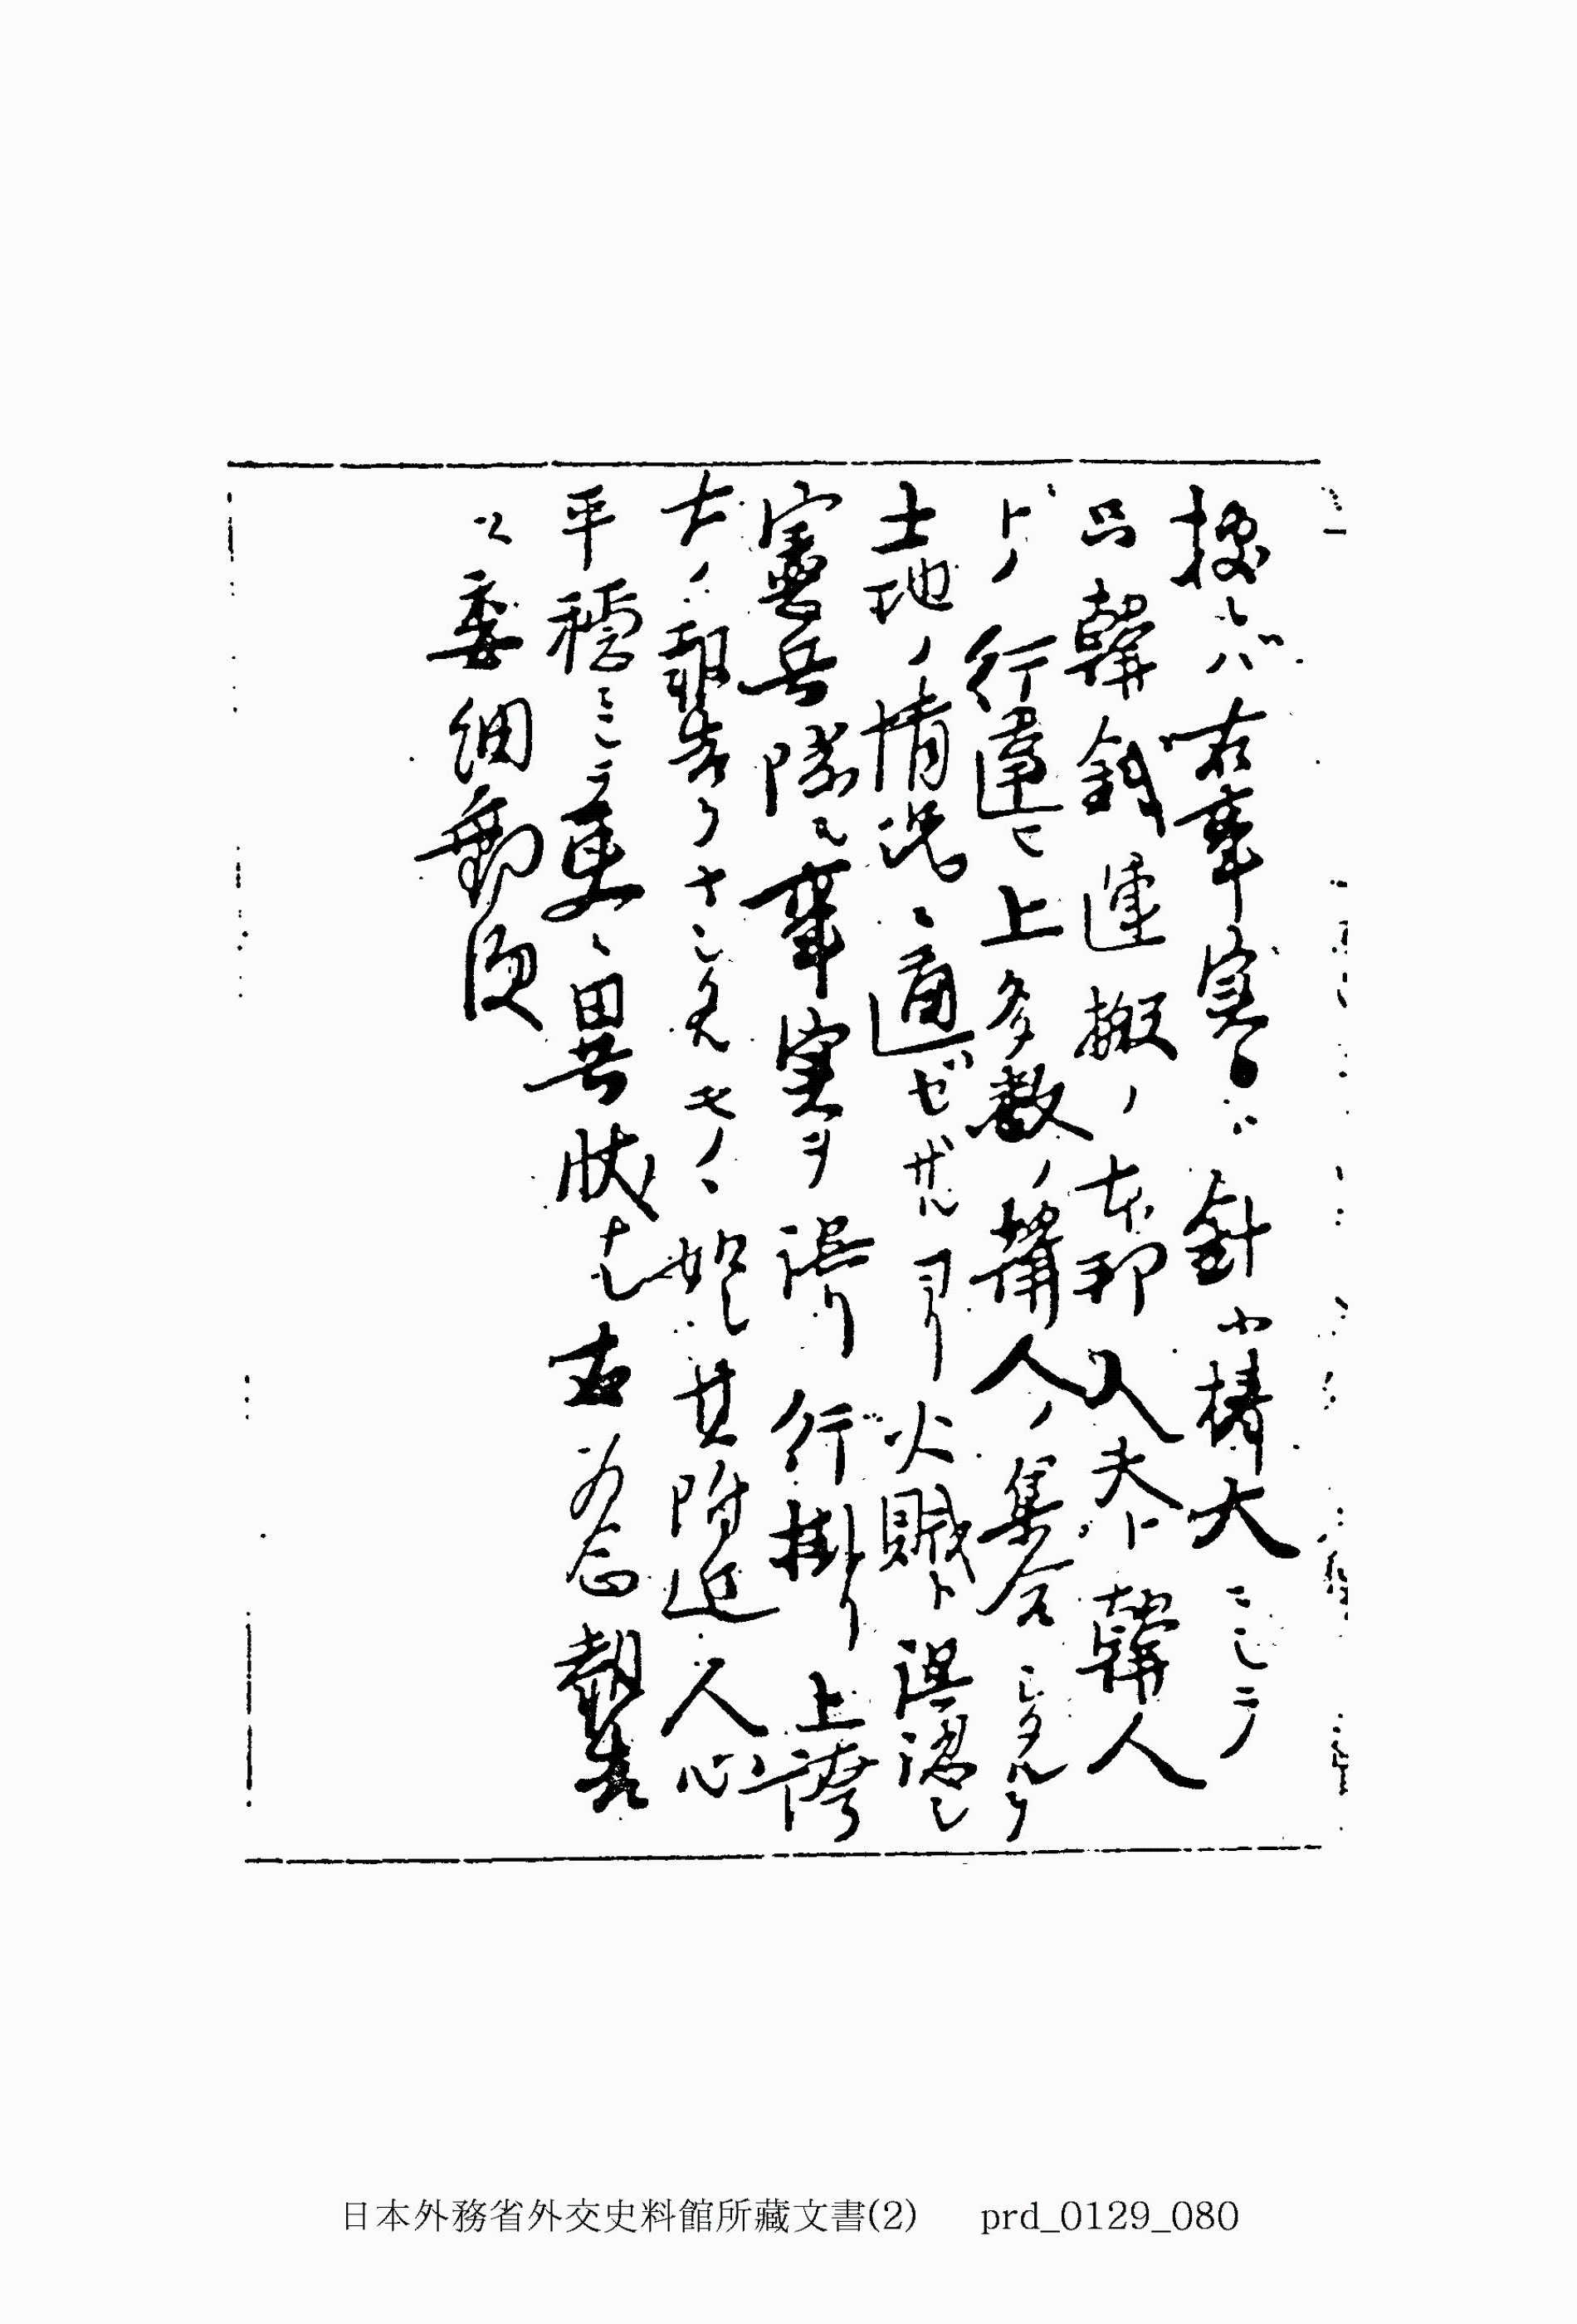 據レバ右事実ハ針小棒大ニシテ
只韓銭運搬ノ本邦人夫ト韓人
トノ行違ヒ上多数ノ韓人ノ集合シタルヲ
土地ノ情况ニ通ゼザルヨリ火賊ト誤認シ
憲兵隊モ事実ヲ誤リ行掛リ上誇
大ノ報告ヲナシタルモノヽ如シ其附近人心
平穏ニシテ更ニ異状ナシ右為念報告
ス委細郵便
日本外務省外交史料館所藏文書(2) prd_0129_080